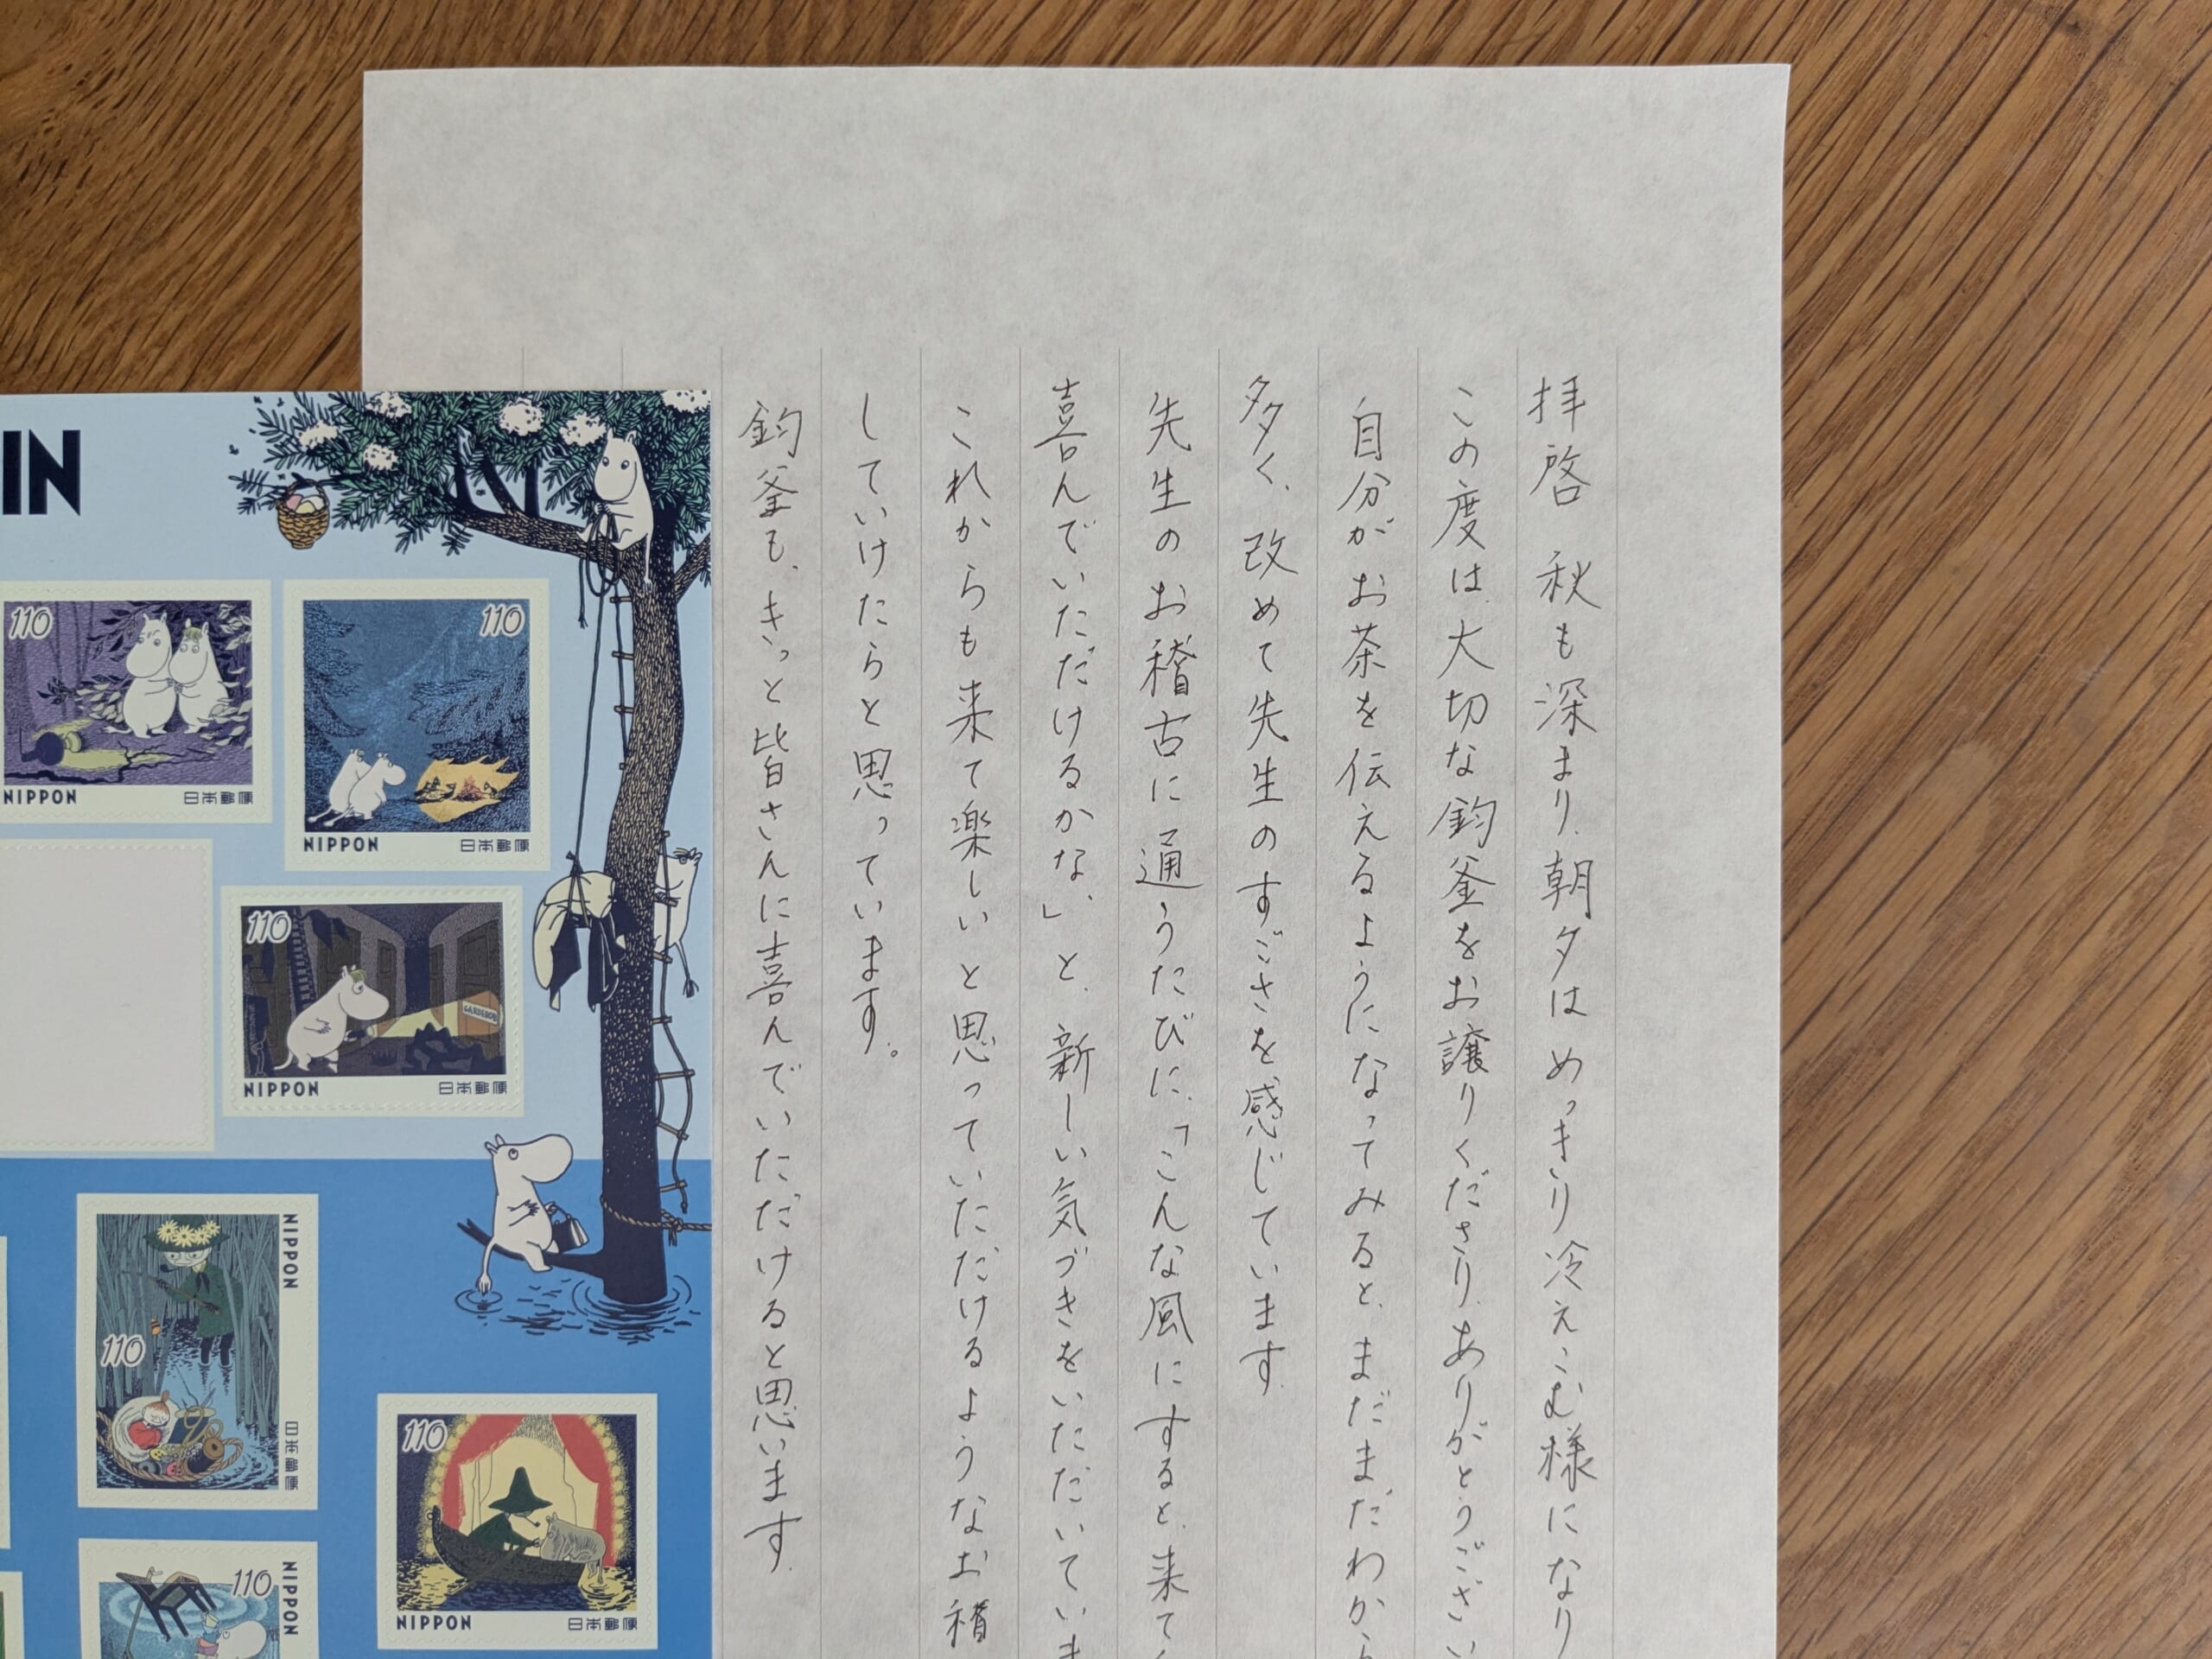 拝啓 秋も深まり、朝夕はめっきり冷えこむ様になり
この度は、大切な釣釜をお譲りくださり、ありがとうござい
自分がお茶を伝えるようになってみると、まだまだわから
多く、改めて先生のすごさを感じています。
先生のお稽古に通うたびに、「こんな風にすると、来てく
喜んでいただけるかな、」と、新しい気づきをいただいていま
これからも来て楽しいと思っていただけるようなお稽
していけたらと思っています。
釣釜も、きっと皆さんに喜んでいただけると思います。
IN
110
NIPPON 日本郵便
110
NIPPON 日本郵便
110
GARDEROB
NIPPON 日本郵便
110
NIPPON 日本郵便
110
NIPPON 日本郵便
110
NIPPON